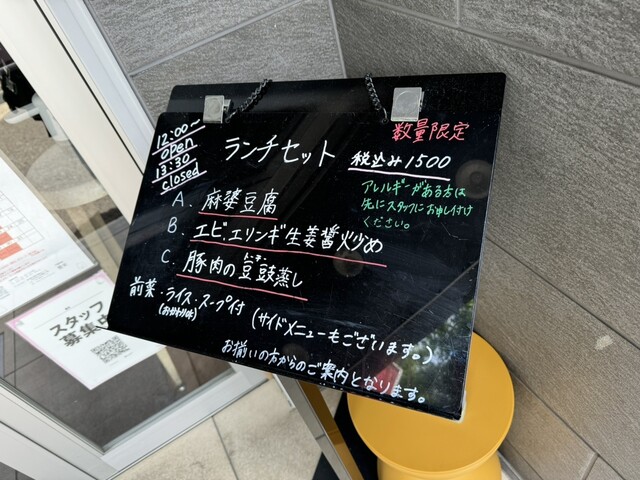 12:00〜
open
13:30
closed
ランチセット
数量限定
税込み1500
アレルギーがある方は
先にスタッフにお申し付け
ください。
A. 麻婆豆腐
B. エビ、エリンギ生姜醤炒め
C. 豚肉の豆豉蒸し
トーチー
前菜・ライス・スープ付
(サイドメニューもございます。)
お揃いの方からのご案内となります。
スタッフ
募集中